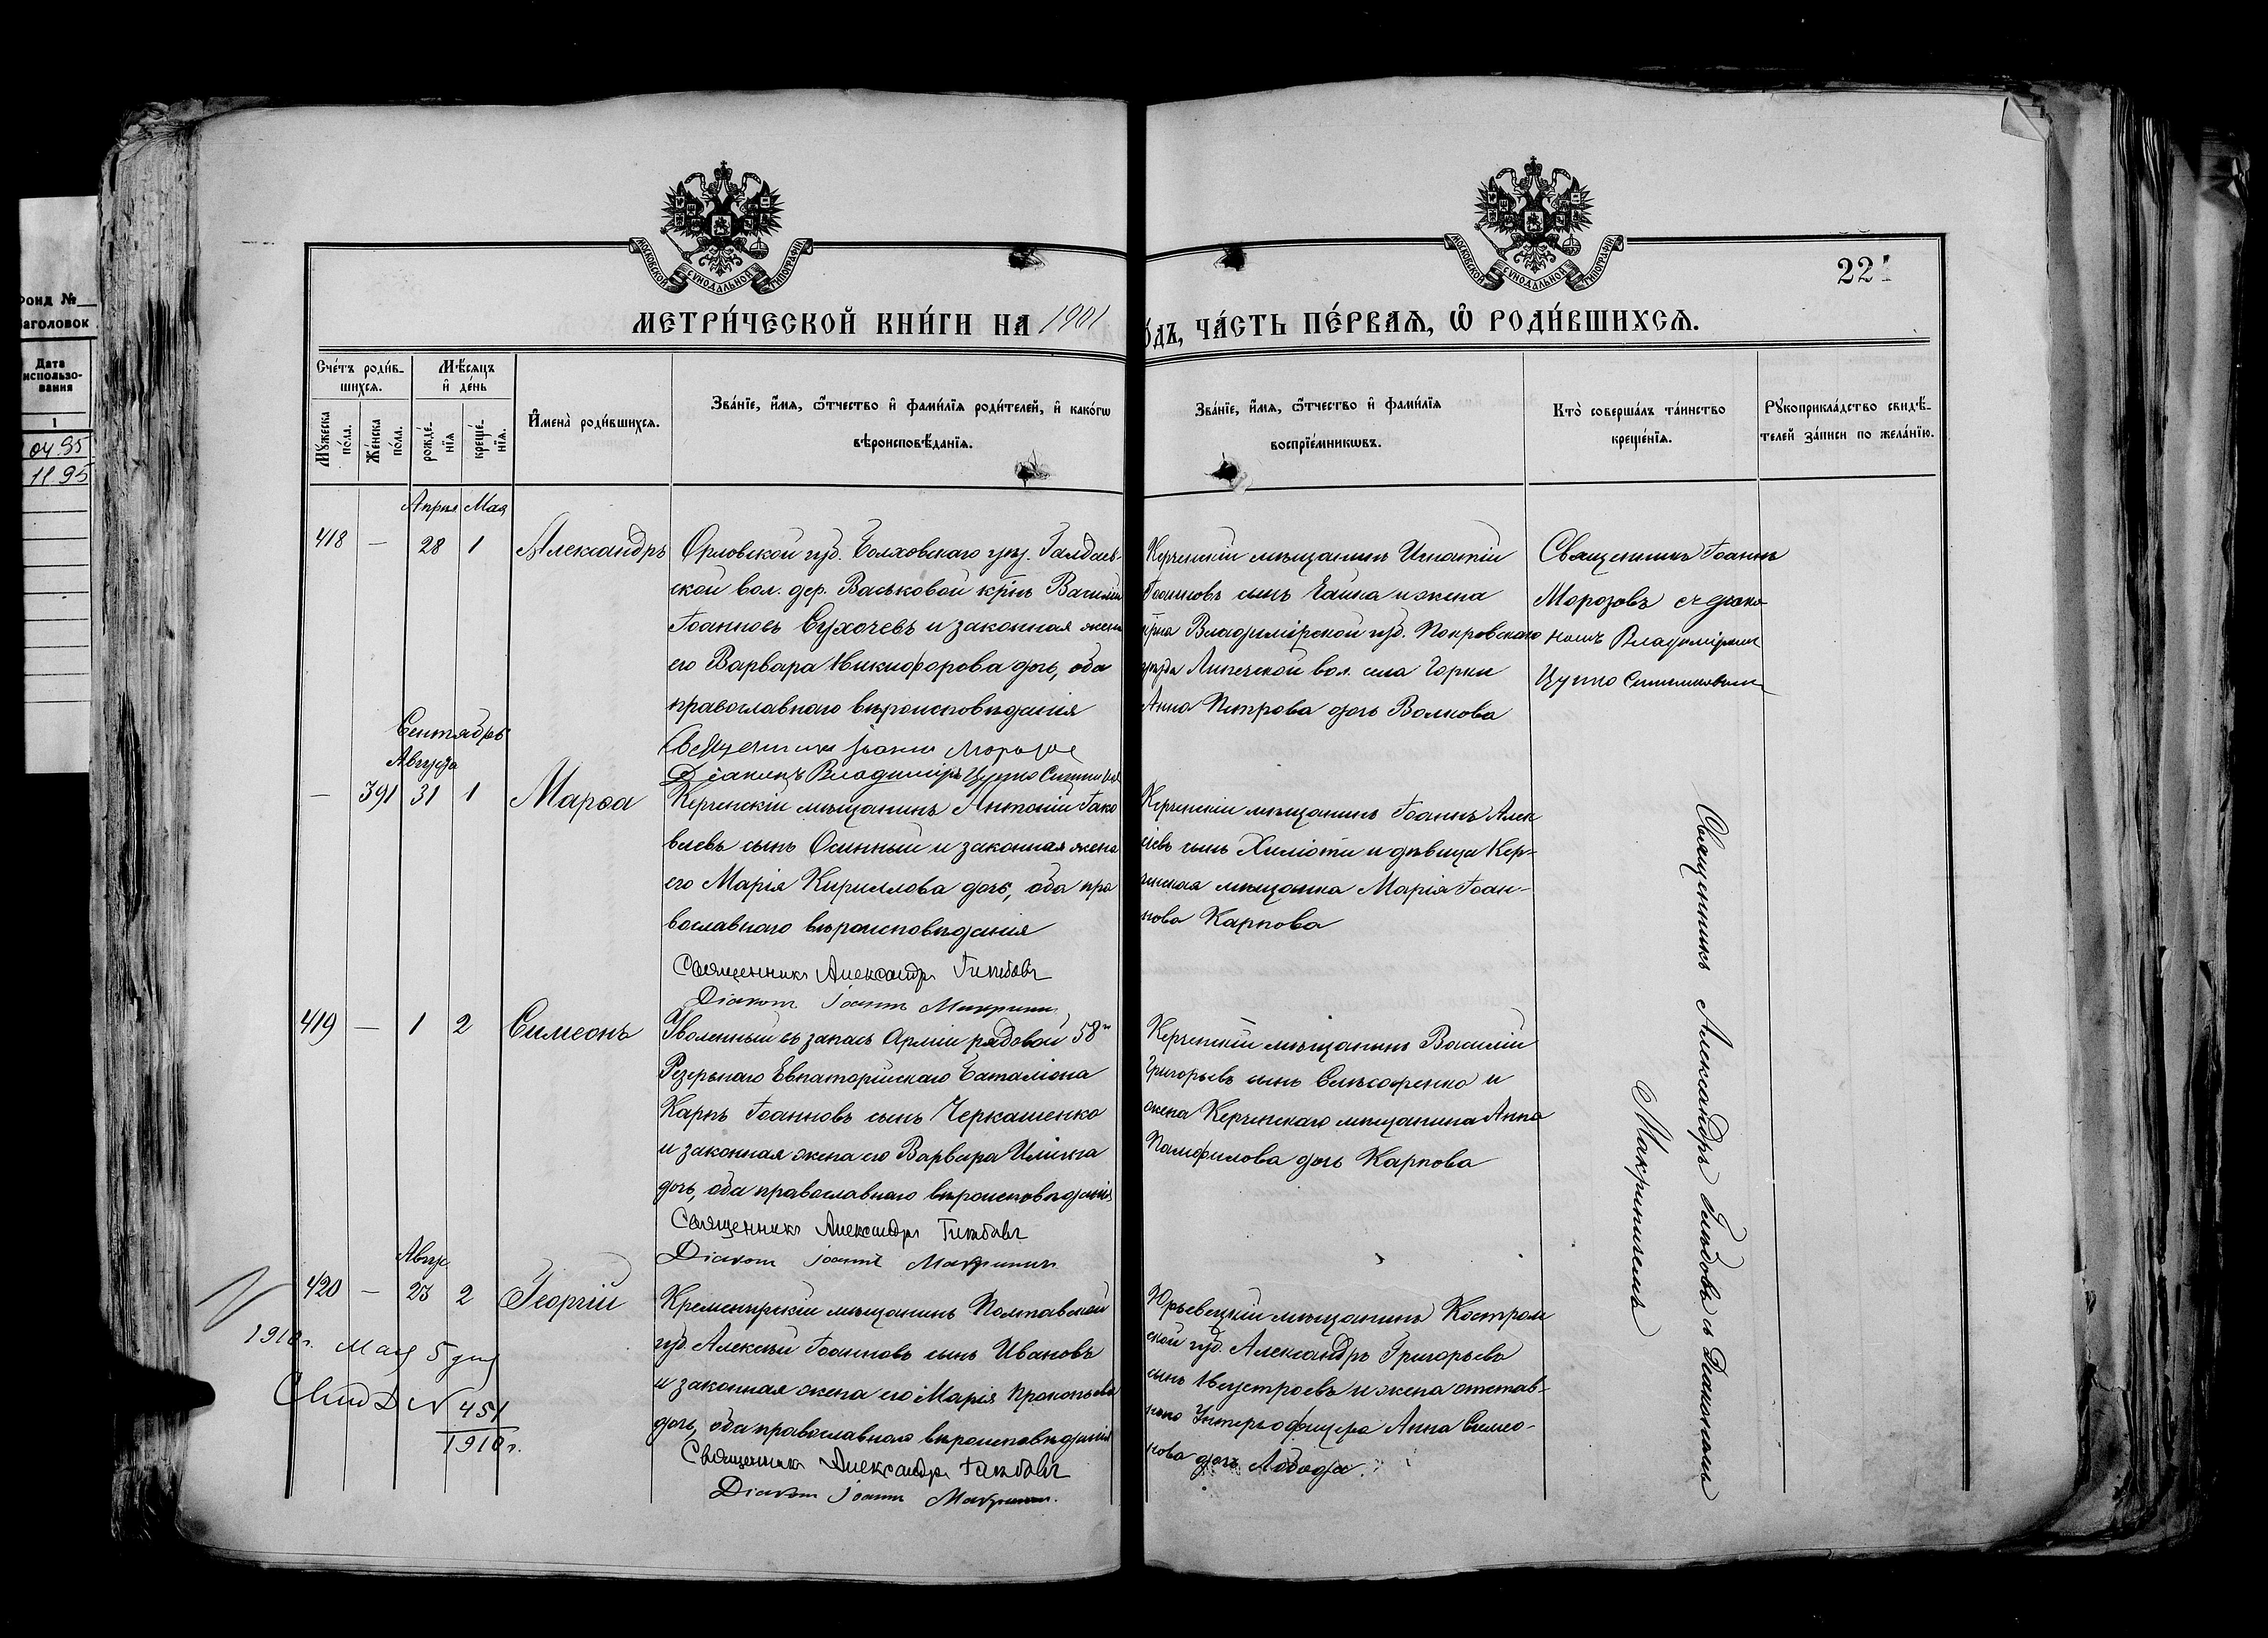 Фонд №
Заголовок
Дата
использо-
вания
1
04.95
11.95
МОСКОВСКОЙ СѴНОДАЛЬНОЙ ТИПОГРАФІИ
МОСКОВСКОЙ СѴНОДАЛЬНОЙ ТИПОГРАФІИ
221
МЕТРИ́ЧЕСКОЙ КНИ́ГИ НА 1901
ГО́ДЪ, ЧА́СТЬ ПЕ́РВАѦ, Ѡ РОДИ́ВШИХСѦ.
Сче́тъ роди́в-
шихсѧ.
Мѣ́сѧцъ
и҆ де́нь
Мꙋжеска
по́ла.
Же́нска
по́ла.
рожде́-
нїѧ
креще́-
нїѧ.
И҆мена̀ роди́вшихсѧ.
Зва́нїе, и҆́мѧ, ѻ҆́тчество и҆ фами́лїѧ роди́телей, и҆ како́гѡ
вѣроисповѣ́данїѧ.
Зва́нїе, и҆́мѧ, ѻ҆́тчество и҆ фами́лїѧ
воспрїе́мникѡвъ.
Кто̀ соверша́лъ та́инство
креще́нїѧ.
Рꙋкоприкла́дство свидѣ́-
телей за́писи по жела́нїю.
Апрѣля Мая
418 — 28 1 Александръ
Орловской губ. Болховскаго уѣз.
ской вол. дер. Васьковой кр̃нъ Василій
Іоанновъ Сухочевъ и законная жена
его Варвара Никифорова дочь, оба
православнаго вѣроисповѣданія
Священникъ Іоаннъ Морозов
Діаконъ Владиміръ Цупко
Керченскій мѣщанинъ Игнатій
Іоанновъ сынъ и жена
кр̃на Владимірской губ. Покровскаго
уѣзда Липенской вол. села Горки
Анна Петрова дочь Волкова
Священникъ Іоаннъ
Морозовъ съ діако
номъ Владиміромъ
Цупко
Сентябрь
Августа
— 391 31 1 Марѳа
Керченскій мѣщанинъ Антоній Іако
влевъ сынъ Осинный и законная жена
его Марія Кириллова дочь, оба пра
вославнаго вѣроисповѣданія
Священникъ Александръ Гимбовъ
Діаконъ Іоаннъ
Керченскій мѣщанинъ Іоаннъ Алек
сіевъ сынъ и дѣвица Кер-
ченская мѣщанка Марія Іоан-
нова Карпова
419 — 1 2 Симеонъ
Уволенный въ запасъ Арміи рядовой 58го
Резервнаго Евпаторійскаго Баталіона
Карпъ Іоанновъ сынъ Черкашенко
и законная жена его Варвара Ильина
дочь, оба православнаго вѣроисповѣданія
Священникъ Александръ Гимбовъ
Діаконъ Іоаннъ
Керченскій мѣщанинъ Василій
Григорьевъ сынъ и
жена Керченскаго мѣщанина Анна
Памфилова дочь Карпова
Авгус.
420 — 23 2 Георгій
Кременчугскій мѣщанинъ Полтавской
губ. Алексѣй Іоанновъ сынъ Ивановъ
и законная жена его Марія Прокопьева
дочь, оба православнаго вѣроисповѣданія
Священникъ Александръ Гимбовъ
Діаконъ Іоаннъ
Юрьевецкій мѣщанинъ Костром
ской губ. Александръ Григорьевъ
сынъ и жена отстав-
ного Унтеръ-офицера Анна Симео-
нова дочь Лобода.
Священникъ Александръ съ Діакономъ
1910г. Мая 5 дня
Свид № 451
1910г.